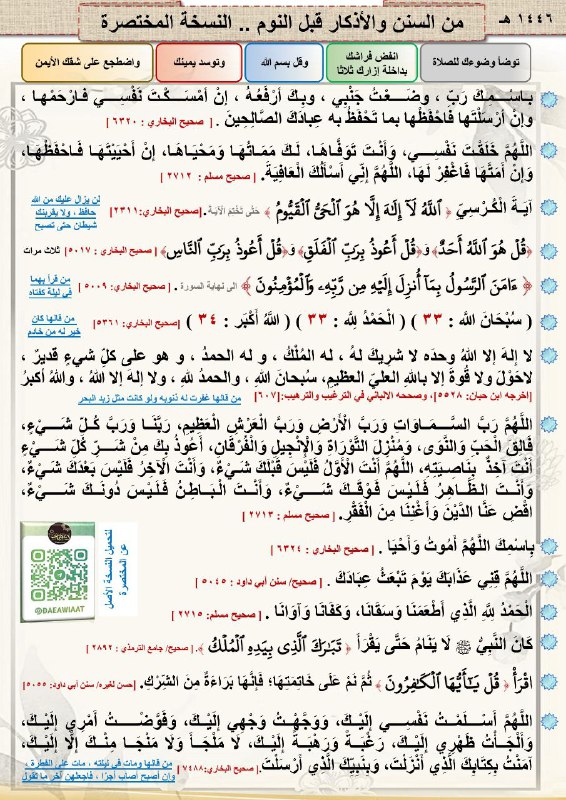 ١٤٤٦ هـ
من السنن والأذكار قبل النوم .. النسخة المختصرة
توضأ وضوءك للصلاة
انفض فراشك
بداخلة إزارك ثلاثا
وقل بسم الله
وتوسد يمينك
واضطجع على شقك الأيمن
بـاسْـمِـكَ رَبِّ ، وضَـعْـتُ جَنْبِي ، وبِكَ أرْفَعُهُ ، إنْ أمْسَـكْـتَ نَفْسِـي فَـارْحَمْهَا ،
وإنْ أرْسَلْتَها فَاحْفَظْها بما تَحْفَظُ به عِبَادَكَ الصَّالِحِينَ . [ صحيح البخاري : ٦٣٢٠ ]
اللَّهُمَّ خَلَقْتَ نَفْسِـي، وَأَنْتَ تَوَفَّاهَا، لَكَ مَمَاتُهَا وَمَحْيَاهَا، إنْ أَحْيَيْتَهَا فَـاحْفَظْهَـا،
وَإِنْ أَمَتَّهَا فَاغْفِرْ لَهَا، اللَّهُمَّ إنِّي أَسْأَلُكَ الْعَافِيَةَ. [ صحيح مسلم : ٢٧١٢ ]
آيَـةَ الْكُرْسِيِّ ﴿ ٱللَّهُ لَآ إِلَٰهَ إِلَّا هُوَ ٱلْحَىُّ ٱلْقَيُّومُ ﴾ حَتَّى تَخْتِمَ الآيَـةَ .[صحيح البخاري:٢٣١١]
لن يزال عليك من الله
حافظ ، ولا يقربنك
شيطان حتى تصبح
﴿قُلْ هُوَ ٱللَّهُ أَحَدٌ﴾ وَ﴿قُلْ أَعُوذُ بِرَبِّ ٱلْفَلَقِ﴾ وَ﴿قُلْ أَعُوذُ بِرَبِّ ٱلنَّاسِ﴾ [ صحيح البخاري : ٥٠١٧ ] ثلاث مرات
﴿ ءَامَنَ ٱلرَّسُولُ بِمَآ أُنزِلَ إِلَيْهِ مِن رَّبِّهِۦ وَٱلْمُؤْمِنُونَ ﴾ الى نهاية السورة . [ صحيح البخاري : ٥٠٠٩ ]
من قرأ بهما
في ليلة كفتاه
( سُبْحَانَ اللهِ : ٣٣ ) ( الْحَمْدُ لِلهِ : ٣٣ ) ( اللهُ أَكْبَرُ : ٣٤ ) [صحيح البخاري: ٥٣٦١]
من قالها كان
خير له من خادم
لا إلهَ إلا اللهُ وحدَه لا شريكَ لهُ ، له المُلْكُ ، و له الحمدُ ، و هو على كلِّ شيءٍ قديرٌ ،
لاحَوْلَ ولا قُوةَ إلا باللهِ العليِّ العظيمِ، سُبحانَ اللهِ ، والحمدُ للهِ ، ولا إلهَ إلا اللهُ ، واللهُ أكبرُ
[أخرجه ابن حبان: ٥٥٢٨، وصححه الالباني في الترغيب والترهيب:٦٠٧] من قالها غفرت له ذنوبه ولو كانت مثل زبد البحر
اللَّهُمَّ رَبَّ السَّـمَـاوَاتِ وَرَبَّ الأَرْضِ وَرَبَّ الْعَرْشِ الْعَظِيمِ، رَبَّنَا وَرَبَّ كُلِّ شَيْءٍ،
فَالِقَ الْحَبِّ وَالنَّوَى، وَمُنْزِلَ التَّوْرَاةِ وَالإِنْجِيلِ وَالْفُرْقَانِ، أَعُوذُ بِكَ مِنْ شَـرِّ كُلِّ شَيْءٍ
أَنْتَ آخِذٌ بِنَاصِيَتِهِ، اللَّهُمَّ أَنْتَ الأَوَّلُ فَلَيْسَ قَبْلَكَ شَيْءٌ، وَأَنْتَ الآخِرُ فَلَيْسَ بَعْدَكَ شَيْءٌ،
وَأَنْـتَ الظَّـاهِـرُ فَلَـيْـسَ فَوْقَـكَ شَـيْءٌ، وَأَنْتَ الْـبَـاطِـنُ فَلَـيْـسَ دُونَـكَ شَـيْءٌ،
اقْضِ عَنَّا الدَّيْنَ وَأَغْنِنَا مِنَ الْفَقْرِ. [ صحيح مسلم : ٢٧١٣ ]
بِاسْمِكَ اللَّهُمَّ أَمُوتُ وَأَحْيَا . [ صحيح البخاري : ٦٣٢٤ ]
اللَّهُمَّ قِنِي عَذَابَكَ يَوْمَ تَبْعَثُ عِبَادَكَ . [ صحيح/ سنن أبي داود : ٥٠٤٥ ]
الْحَمْدُ لِلَّهِ الَّذِي أَطْعَمَنَا وَسَقَانَا، وَكَفَانَا وَآوَانَا . [ صحيح مسلم: ٢٧١٥ ]
كَانَ النَّبِيُّ ﷺ لَا يَنَامُ حَتَّى يَقْرَأَ ﴿ تَبَٰرَكَ ٱلَّذِى بِيَدِهِ ٱلْمُلْكُ ﴾. [صحيح/ جامع الترمذي : ٢٨٩٢ ]
اقْرَأْ ﴿ قُلْ يَٰٓأَيُّهَا ٱلْكَٰفِرُونَ ﴾ ثُمَّ نَمْ عَلَى خَاتِمَتِهَا؛ فَإِنَّهَا بَرَاءَةٌ مِنَ الشِّرْكِ. [حسن لغيره/ سنن أبي داود: ٥٠٥٥]
اللَّهُمَّ أَسْـلَمْـتُ نَفْسِـي إِلَيْكَ، وَوَجَّهْتُ وَجْهِي إِلَيْكَ، وَفَوَّضْـتُ أَمْرِي إِلَيْكَ،
وَأَلْجَأْتُ ظَهْرِي إِلَيْكَ، رَغْبَةً وَرَهْبَةً إِلَيْكَ، لَا مَلْجَـأَ وَلَا مَنْجَا مِنْكَ إِلَّا إِلَيْكَ،
آمَنْتُ بِكِتَابِكَ الَّذِي أَنْزَلْتَ، وَبِنَبِيِّكَ الَّذِي أَرْسَلْتَ.[ صحيح البخاري:٧٤٨٨ ]
من قالها ومات في ليلته ، مات على الفطرة ،
وإن أصبح أصاب أجرًا ، فاجعلهن آخر ما تقول
لتحميل النسخة الأصل
عن المختصرة
@DAEAWIAAT